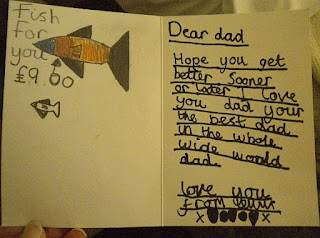 Fish
for
you
£9.00
Dear dad
Hope you get
better sooner
or later I love
you dad your
the best dad
in the whole
wide world
dad
love you
from
x x